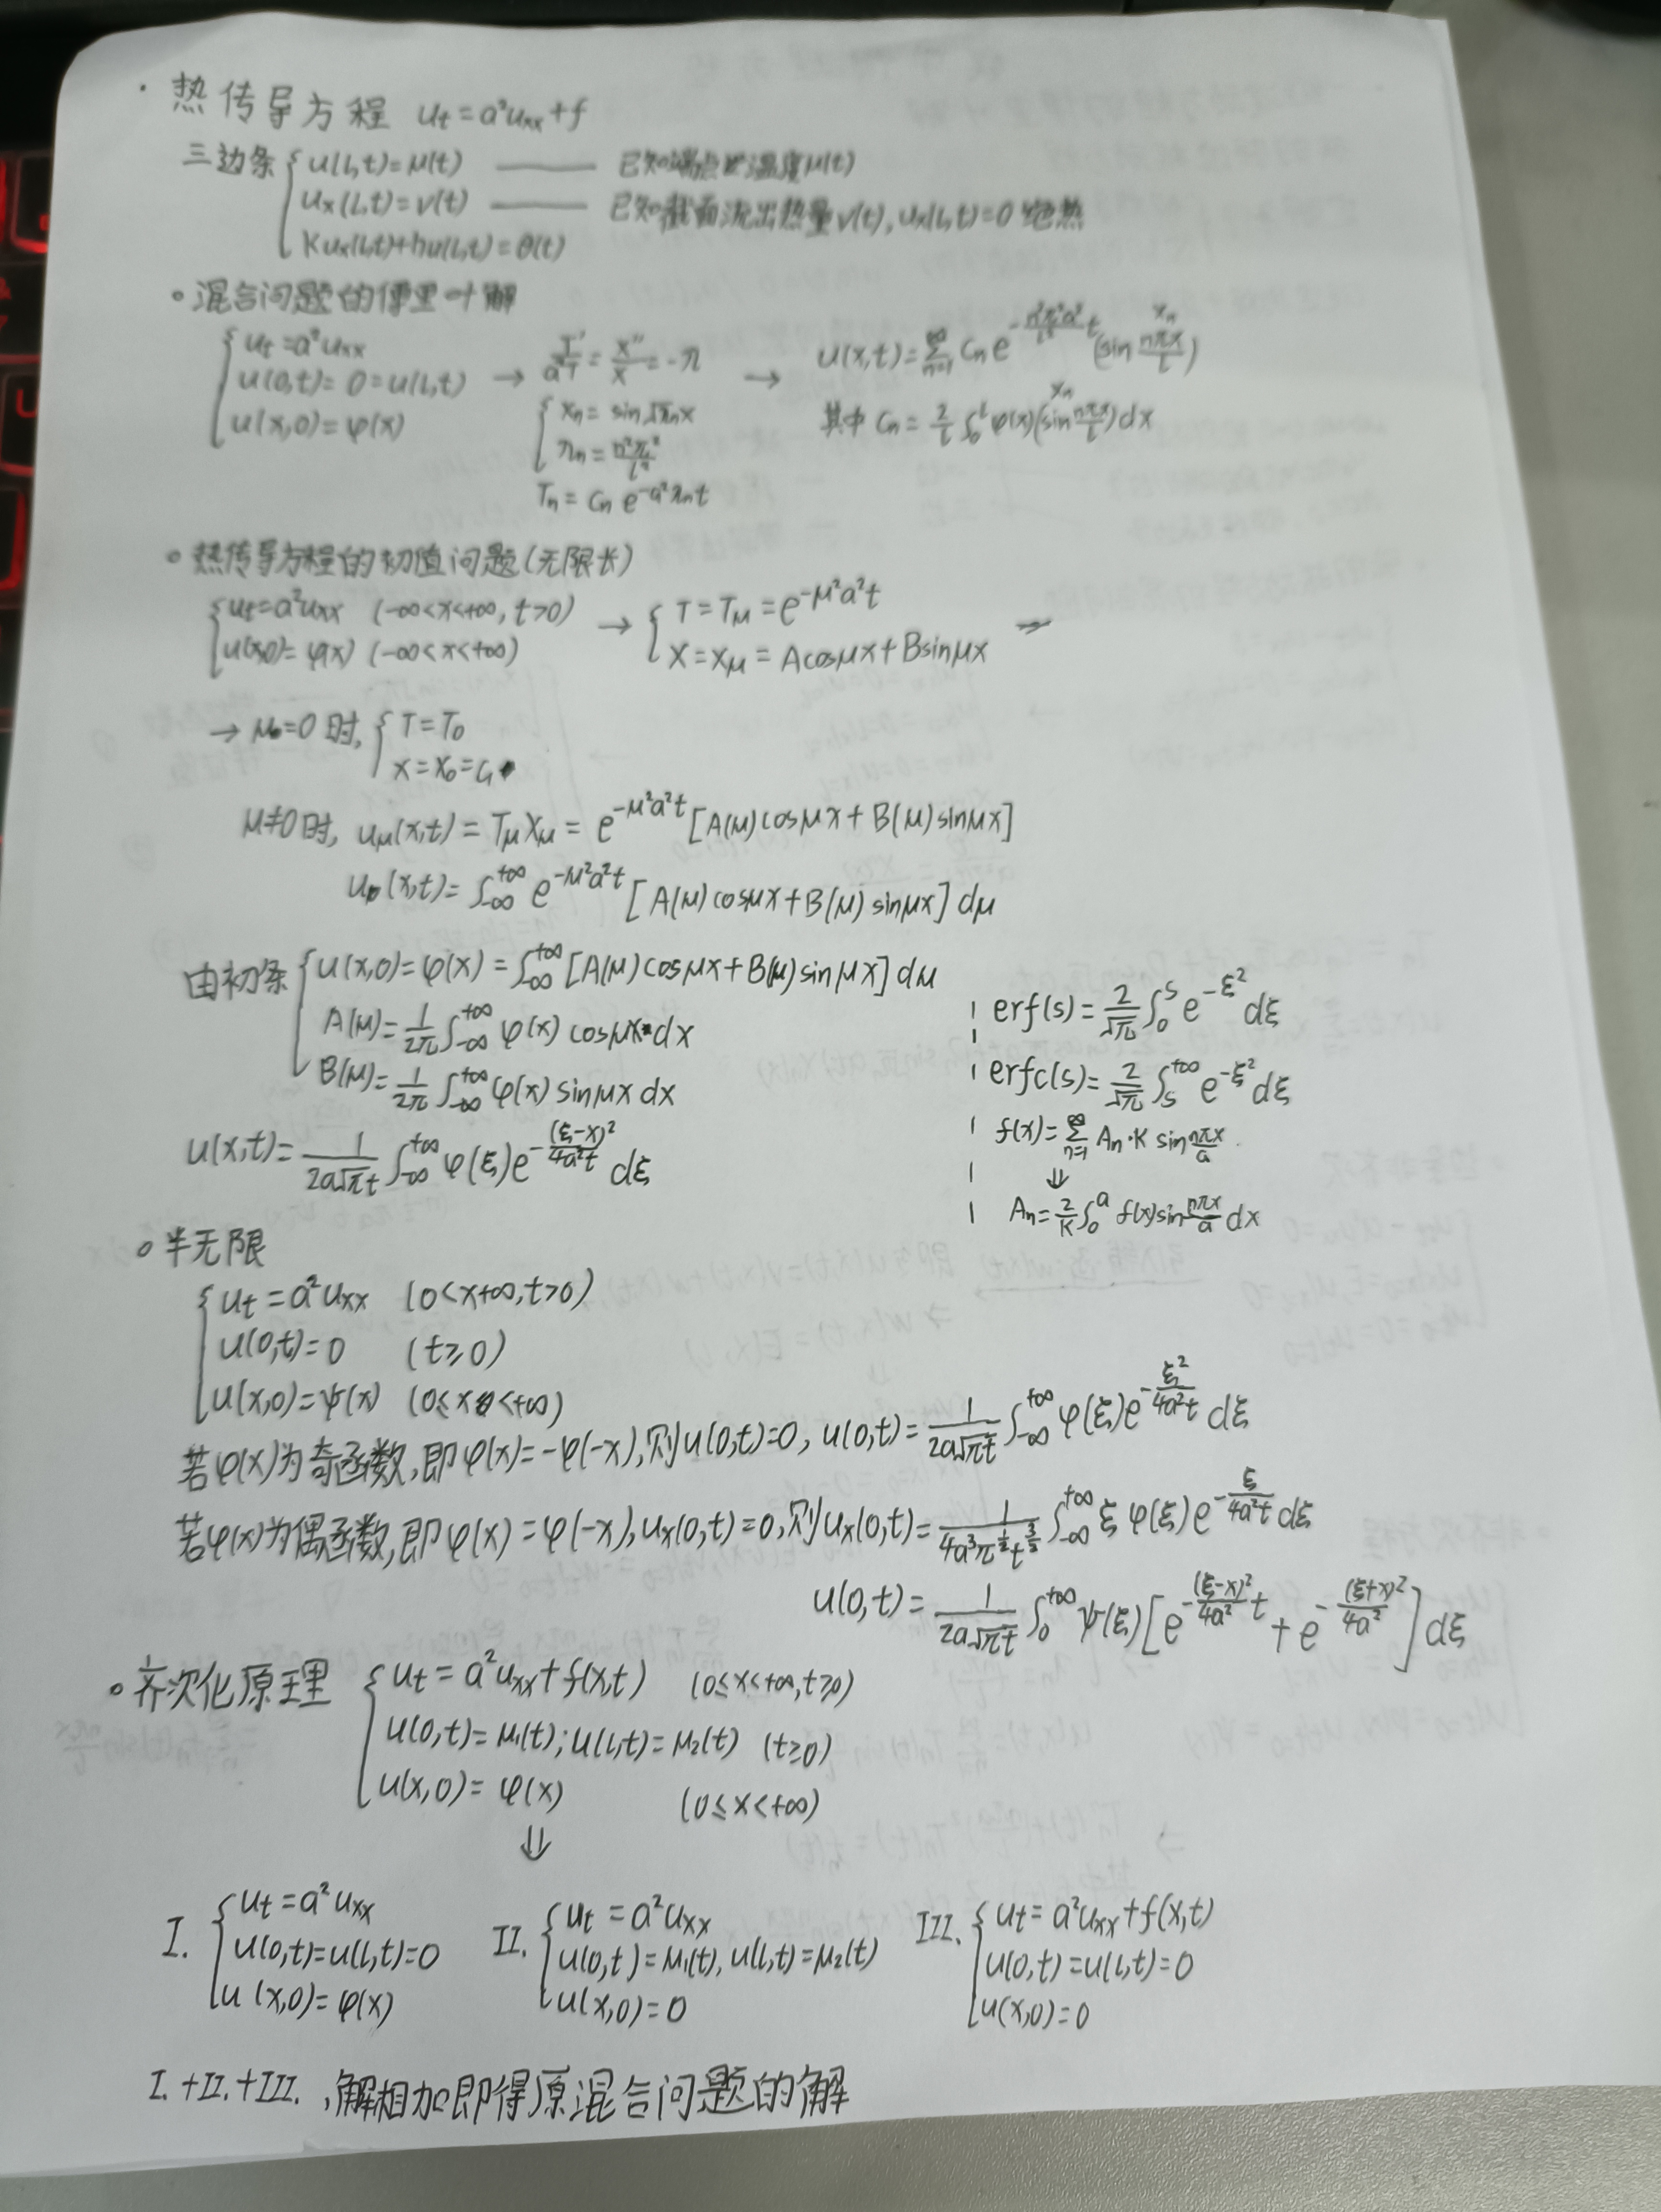 · 热传导方程 uₜ=a²uₓₓ+f
三边条 { u(l,t)=μ(t) —— 已知端点处温度μ(t)
uₓ(l,t)=ν(t) —— 已知截面流出热量ν(t), uₓ(l,t)=0 绝热
Kuₓ(l,t)+hu(l,t)=θ(t)
∘ 混合问题的傅里叶解
{ uₜ=a²uₓₓ
u(0,t)=0=u(l,t) → T'/(a²T) = X''/X = -λ → u(x,t)=∑_{n=1}^{∞} Cₙe^{-(n²π²a²/l²)t} (sin nπx/l) Xₙ
u(x,0)=φ(x)
{ Xₙ=sin√λₙx
其中 Cₙ=2/l ∫₀^l φ(x)(sin nπx/l)dx Xₙ
λₙ=n²π²/l²
Tₙ=Cₙe^{-a²λₙt}
∘ 热传导方程的初值问题(无限长)
{ uₜ=a²uₓₓ (-∞<x<+∞, t>0) → { T=T_μ=e^{-μ²a²t}
u(x,0)=φ(x) (-∞<x<+∞) X=X_μ=Acosμx+Bsinμx →
→ μ=0时, { T=T₀
X=X₀=C₁
μ≠0时, u_μ(x,t)=T_μX_μ=e^{-μ²a²t}[A(μ)cosμx+B(μ)sinμx]
u(x,t)=∫_{-∞}^{+∞} e^{-μ²a²t}[A(μ)cosμx+B(μ)sinμx]dμ
由初条 { u(x,0)=φ(x)=∫_{-∞}^{+∞}[A(μ)cosμx+B(μ)sinμx]dμ
A(μ)=1/(2π) ∫_{-∞}^{+∞} φ(x)cosμx dx
B(μ)=1/(2π) ∫_{-∞}^{+∞} φ(x)sinμx dx
u(x,t)=1/(2a√πt) ∫_{-∞}^{+∞} φ(ξ)e^{-(ξ-x)²/(4a²t)}dξ
erf(s)=2/√π ∫₀^s e^{-ξ²}dξ
erfc(s)=2/√π ∫_s^{+∞} e^{-ξ²}dξ
f(x)=∑_{n=1}^{∞} Aₙ·K sin nπx/a
⇓
Aₙ=2/K ∫₀^a f(x)sin nπx/a dx
∘ 半无限
{ uₜ=a²uₓₓ (0<x+∞, t>0)
u(0,t)=0 (t≥0)
u(x,0)=ψ(x) (0≤x<+∞)
若φ(x)为奇函数,即φ(x)=-φ(-x),则u(0,t)=0, u(0,t)=1/(2a√πt) ∫_{-∞}^{+∞} φ(ξ)e^{-ξ²/(4a²t)}dξ
若φ(x)为偶函数,即φ(x)=φ(-x),uₓ(0,t)=0,则uₓ(0,t)=1/(4a³π^{1/2}t^{3/2}) ∫_{-∞}^{+∞} ξφ(ξ)e^{-ξ/(4a²t)}dξ
u(0,t)=1/(2a√πt) ∫₀^{+∞} ψ(ξ)[e^{-(ξ-x)²/(4a²) t}+e^{-(ξ+x)²/(4a²)}]dξ
∘ 齐次化原理 { uₜ=a²uₓₓ+f(x,t) (0≤x<+∞, t≥0)
u(0,t)=μ₁(t); u(l,t)=μ₂(t) (t≥0)
u(x,0)=φ(x) (0≤x<+∞)
⇓
I. { uₜ=a²uₓₓ
u(0,t)=u(l,t)=0
u(x,0)=φ(x)
II. { uₜ=a²uₓₓ
u(0,t)=μ₁(t), u(l,t)=μ₂(t)
u(x,0)=0
III. { uₜ=a²uₓₓ+f(x,t)
u(0,t)=u(l,t)=0
u(x,0)=0
I.+II.+III. ,解相加即得原混合问题的解